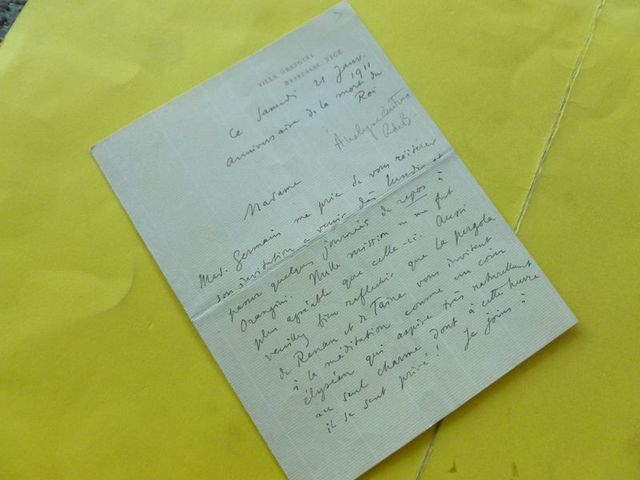 VILLA ORANGINI
NICE
Ce Samedi 21 Janv. 1911
anniversaire de la mort du Roi
R de B.
Madame
Mad. Germain me prie de vous réitérer
son invitation à venir dès lundi et
passer quelques journées de repos à
Orangini. Nulle mission ne me fut
plus agréable que celle-ci. Aussi
veuillez bien réfléchir que la pergola
de Renan et de Taine vous invitent
à la méditation comme un coin
élyséen qui aspire très naturellement
au seul charme dont à cette heure
il se sent privé! Je joins à